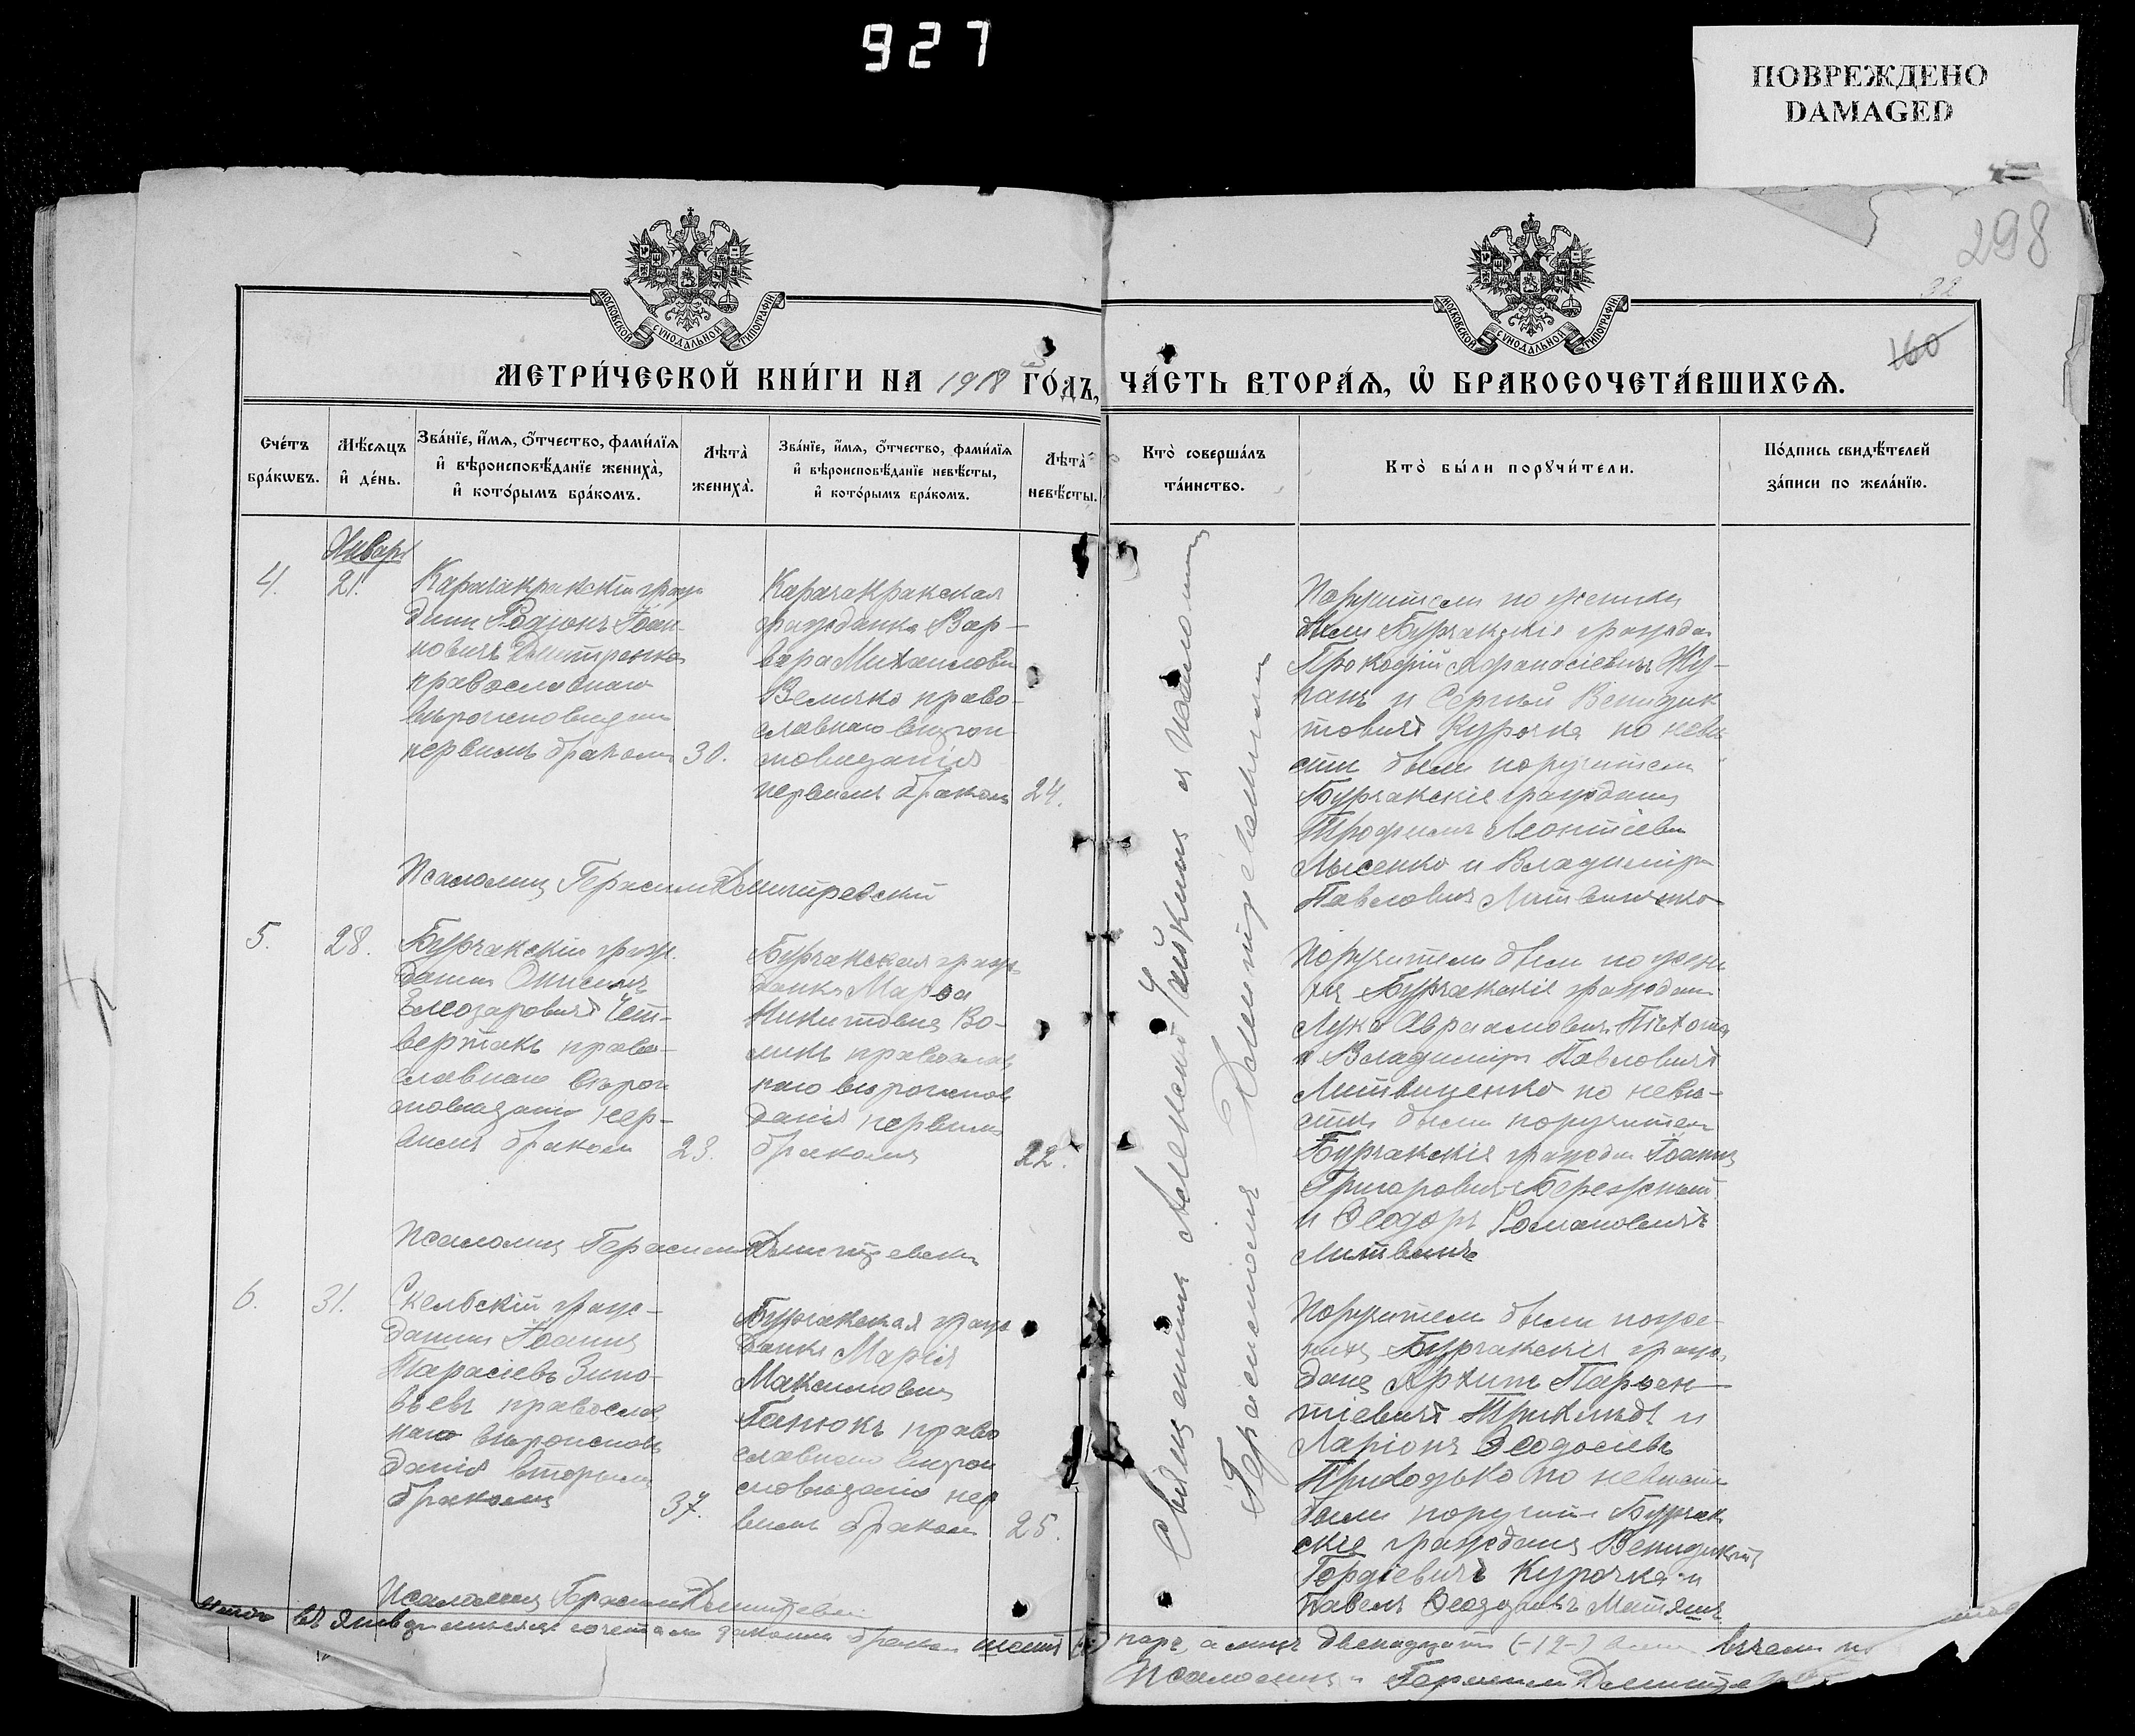 927
ПОВРЕЖДЕНО
DAMAGED
298
32
160
МОСКОВСКОЙ СУНОДАЛЬНОЙ ТИПОГРАФІИ
МОСКОВСКОЙ СУНОДАЛЬНОЙ ТИПОГРАФІИ
МЕТРИ́ЧЕСКОЙ КНИ́ГИ НА 1918 ГО́ДЪ, ЧА́СТЬ ВТОРА́Ѧ, Ѡ҆ БРАКОСОЧЕТА́ВШИХСѦ.
Сче́тъ бра́кѡвъ.
Мѣ́сѧцъ и҆ де́нь.
Зва́нїе, и҆́мѧ, ѻ҆́тчество, фами́лїѧ
и҆ вѣроисповѣ́данїе жениха̀,
и҆ кото́рымъ бра́комъ.
Лѣта̀ жениха̀.
Зва́нїе, и҆́мѧ, ѻ҆́тчество, фами́лїѧ
и҆ вѣроисповѣ́данїе невѣ́сты,
и҆ кото́рымъ бра́комъ.
Лѣта̀ невѣ́сты.
Кто̀ соверша́лъ та́инство.
Кто̀ бы́ли порꙋчи́тели.
По́дпись свидѣ́телей за́писи по жела́нїю.
Январь
4.
21.
Карачакракскій граж
динин Родіонъ Іоан-
новичъ Дмитренко
православнаго
вѣроисповѣдан
первымъ бракомъ
30.
Карачакракская
гражданка Вар-
вара Михаилови
Величко право-
славнаго вѣрои
повѣданія
первымъ бракомъ
24.
Поручители по жениху
были Бурчакскіе граждан
Прокофій Афанасіевичъ
и Сергѣй Венидик
товичъ Курочка по невѣ
стѣ были поручители
Бурчакскіе граждане
Трофимъ Леонтіеви
Лысенко и Владиміръ
Павловичъ Литвиненко
Псаломщ Герасимъ Дмитревскій
5.
28.
Бурчакскій граж
данин Онисимъ
Елеозаровичъ Чет-
вертакъ право-
славнаго вѣрои
повѣданія пер-
вымъ бракомъ
23.
Бурчакская граж
данка Марѳа
Никитовна Во-
ликъ православ
наго вѣроиспов
данія первымъ
бракомъ
22.
Поручители были по жени
ху Бурчакскіе граждан
Лука Авраамовичъ Пѣхота
и Владиміръ Павловичъ
Литвиненко по невѣ-
стѣ были поручител
Бурчакскіе граждан Іоаннъ
Григоровичъ Бережный
и Ѳеодоръ Романовичъ
Литвинъ
Псаломщ Герасимъ Дмитревскі
6.
31.
Скельскій граж-
данин Іоаннъ
Тарасіевъ Зино-
вьевъ православ
наго вѣроисповѣ
данія вторымъ
бракомъ
37.
Бурчакская граж
данка Марія
Максимовна
Ганюкъ право
славнаго вѣрои
сповѣданія пер
вымъ бракомъ
25.
Поручители были по же-
ниху Бурчакскіе граж
дане Архипъ Парѳен-
тіевичъ и
Ларіонъ Ѳеодосіевъ
Приходько по невѣстѣ
были поручит Бурчак
скіе граждане Венидиктъ
Гордіевичъ Курочка и
Павелъ Матяшъ
Псаломщ Герасимъ Дмитрев
Священникъ Чайкинъ и псаломщ
Герасимомъ Дмитревскимъ
Итого въ Январѣ мѣсяцѣ браком шесть паръ, а лицъ двенадцать (-12-)
Псаломщ Герасим Дмитре